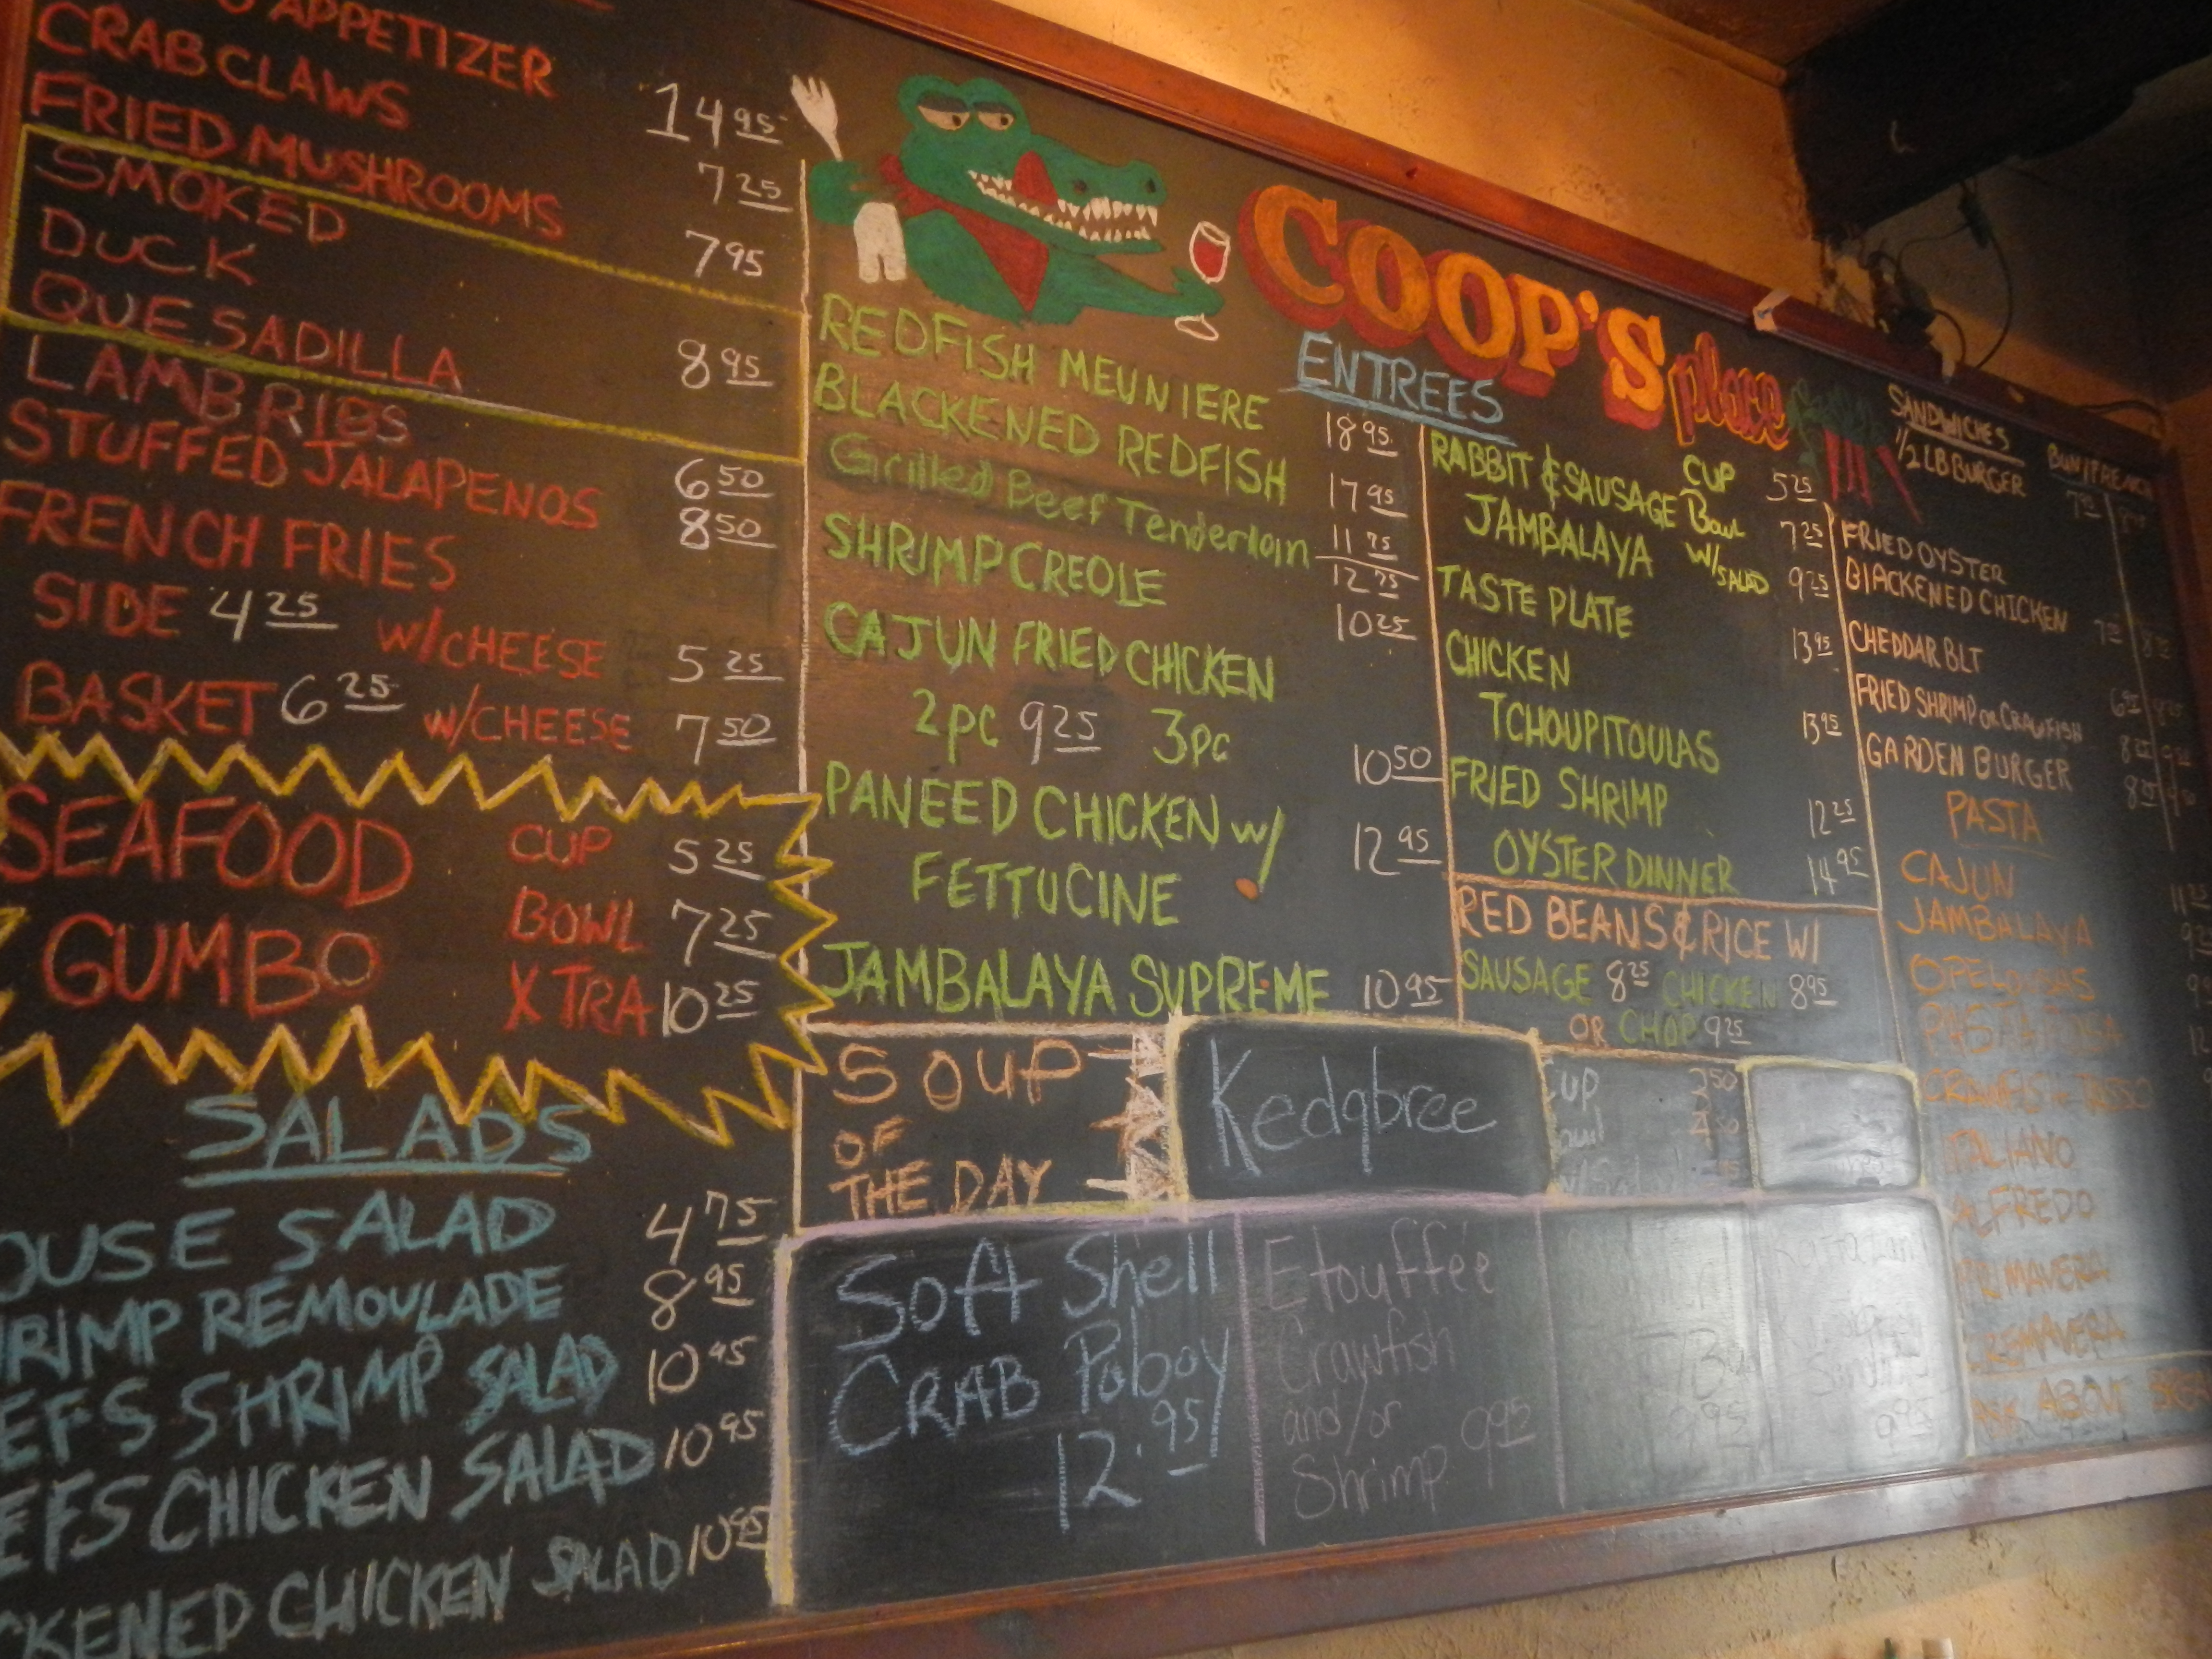 APPETIZER 14 95
CRAB CLAWS 7 25
FRIED MUSHROOMS 7 95
SMOKED
DUCK
QUESADILLA 8 95
LAMB RIBS 6 50
STUFFED JALAPENOS 8 50
FRENCH FRIES
SIDE 4 25 W/CHEESE 5 25
BASKET 6 25 W/CHEESE 7 50
SEAFOOD CUP 5 25
GUMBO BOWL 7 25
XTRA 10 25
SALADS
SALAD 4 75
REMOULADE 8 95
SHRIMP SALAD 10 95
CHICKEN SALAD 10 95
CHICKEN SALAD 10 95
COOP'S place
ENTREES
REDFISH MEUNIERE 18 95
BLACKENED REDFISH 17 95
Grilled Beef Tenderloin 11 75
SHRIMP CREOLE 12 75
CAJUN FRIED CHICKEN 10 25
2pc 9 25 3pc 10 50
PANEED CHICKEN W/ 12 95
FETTUCINE
JAMBALAYA SUPREME 10 95
RABBIT & SAUSAGE CUP 5 25
JAMBALAYA Bowl 7 25
W/SALAD 9 25
TASTE PLATE 13 95
CHICKEN
TCHOUPITOULAS 13 95
FRIED SHRIMP 12 25
OYSTER DINNER 14 95
RED BEANS & RICE W/
SAUSAGE 8 25 CHICKEN 8 95
OR CHOP 9 25
SOUP
OF
THE DAY
Kedgbree
CUP
Soft Shell
CRAB Poboy
12.95
Etouffée
Crawfish
and/or
Shrimp 9 95
SANDWICHES
1/2 LB BURGER
FRIED OYSTER
BLACKENED CHICKEN
CHEDDAR BLT
FRIED SHRIMP OR CRAWFISH
GARDEN BURGER
PASTA
CAJUN
JAMBALAYA
ITALIANO
ALFREDO
PRIMAVERA
ASK ABOUT